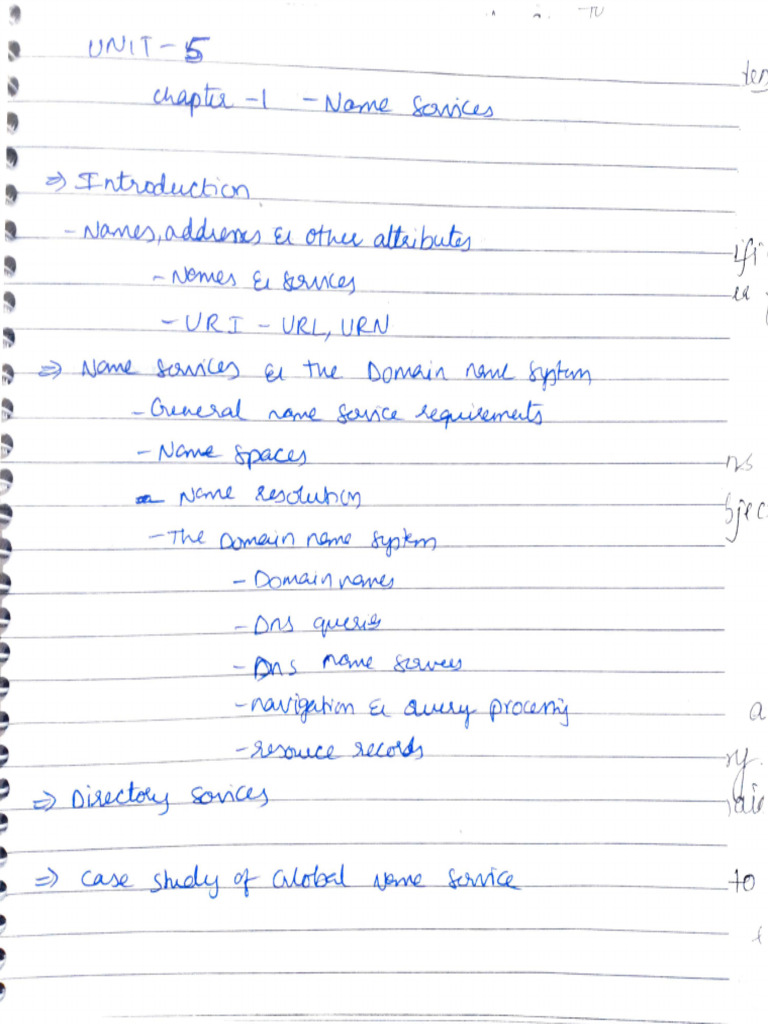 UNIT - 5
chapter -1 - Name Services
⇒ Introduction
- Names, addresses & other attributes
- Names & services
- URI - URL, URN
⇒ Name services & the Domain name system
- General name service requirements
- Name spaces
- Name resolution
- The Domain name system
- Domain names
- DNS queries
- DNS name servers
- navigation & query processing
- resouce records
⇒ Directory Services
⇒ case study of Global Name Service
to